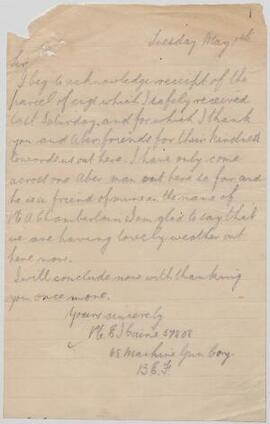 Tuesday May
Sir,
I beg to acknowledge receipt of the
parcel of cigs which I safely received
last Saturday, and for which I thank
you and Aber friends for their kindness
towards us out here. I have only come
across one Aber man out here so far and
he is a friend of ours in the name of
A Chamberlain I am glad to say that
we are having lovely weather out
here now.
I will conclude now with thanking
you once more.
Yours sincerely
Pte E J Caine
Machine Gun Coy
B.E.F.